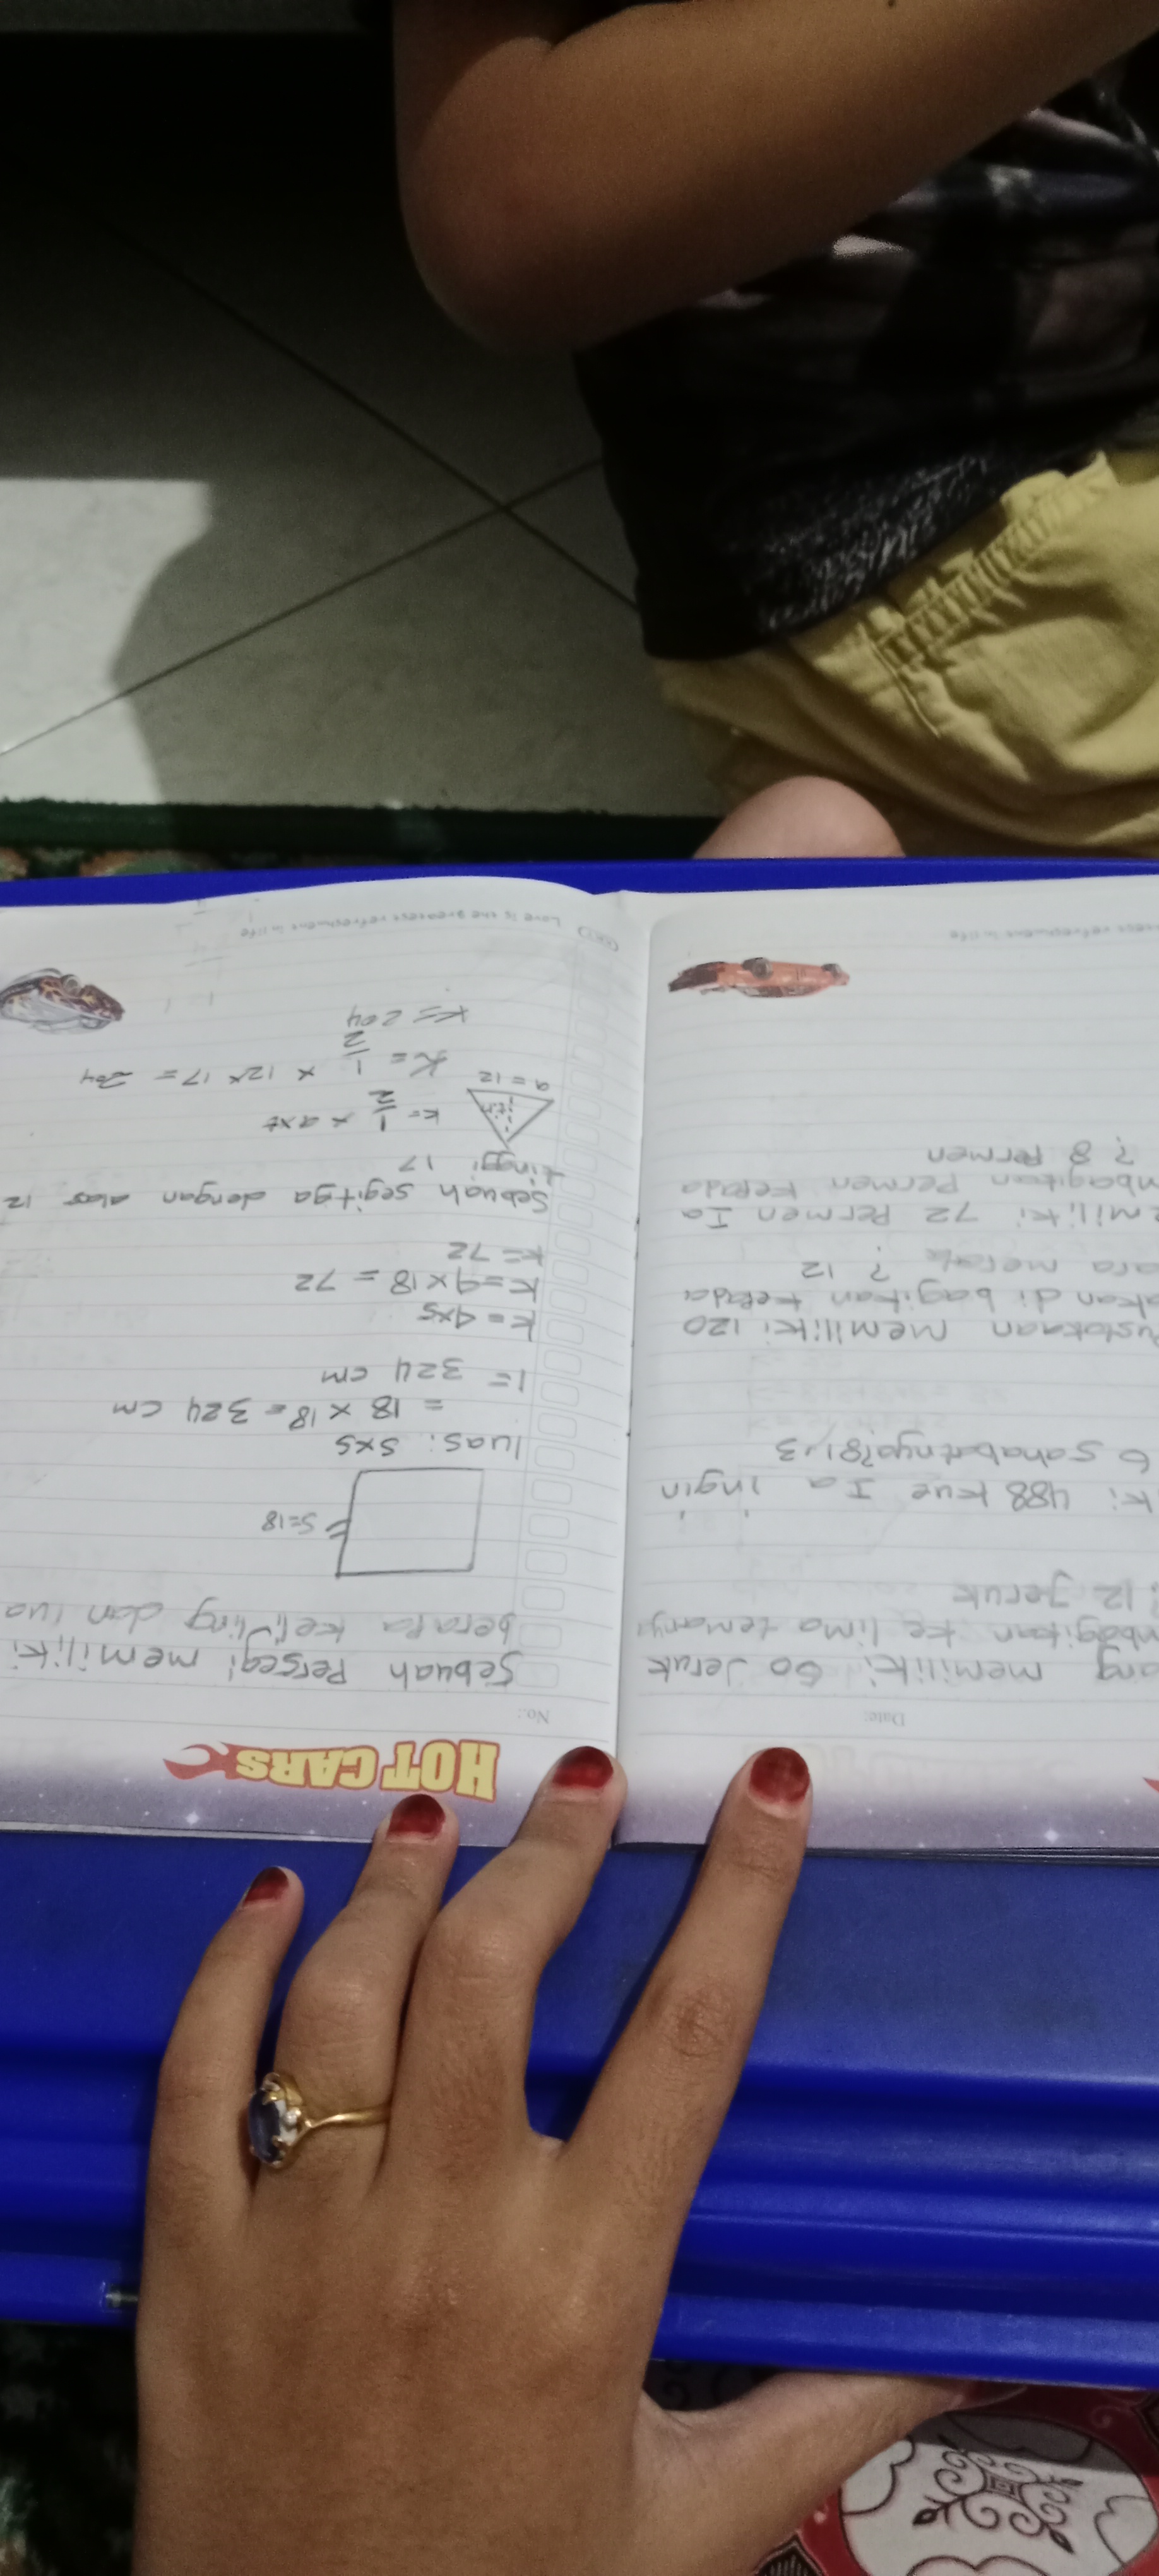 Date:
ang memiliki 60 Jeruk
mbagikan ke lima temannya
? 12 jeruk
ki 488 kue Ia ingin
6 sahabatnya? 81,3
Pustakaan memiliki 120
akan di bagikan kepada
para
? 12
emiliki 72 Permen Ia
mbagikan Permen kepada
? 8 Permen
HOT CARS
No.:
Sebuah Persegi memiliki
berapa keliling dan lua
S=18
luas: sxs
= 18 x 18 = 324 cm
l = 324 cm
k = 4xs
K = 4x18 = 72
k = 72
Sebuah segitga dengan alas 12
tinggi 17
k = 1/2 x axt
a = 12
K = 1/2 x 12x 17 = 204
K = 204
Love is the greatest refreshment in life